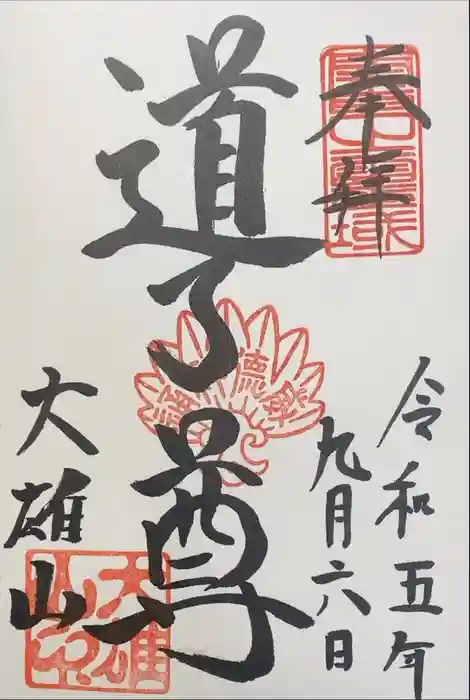 奉拝
令和五年
九月六日
道了尊
大雄山